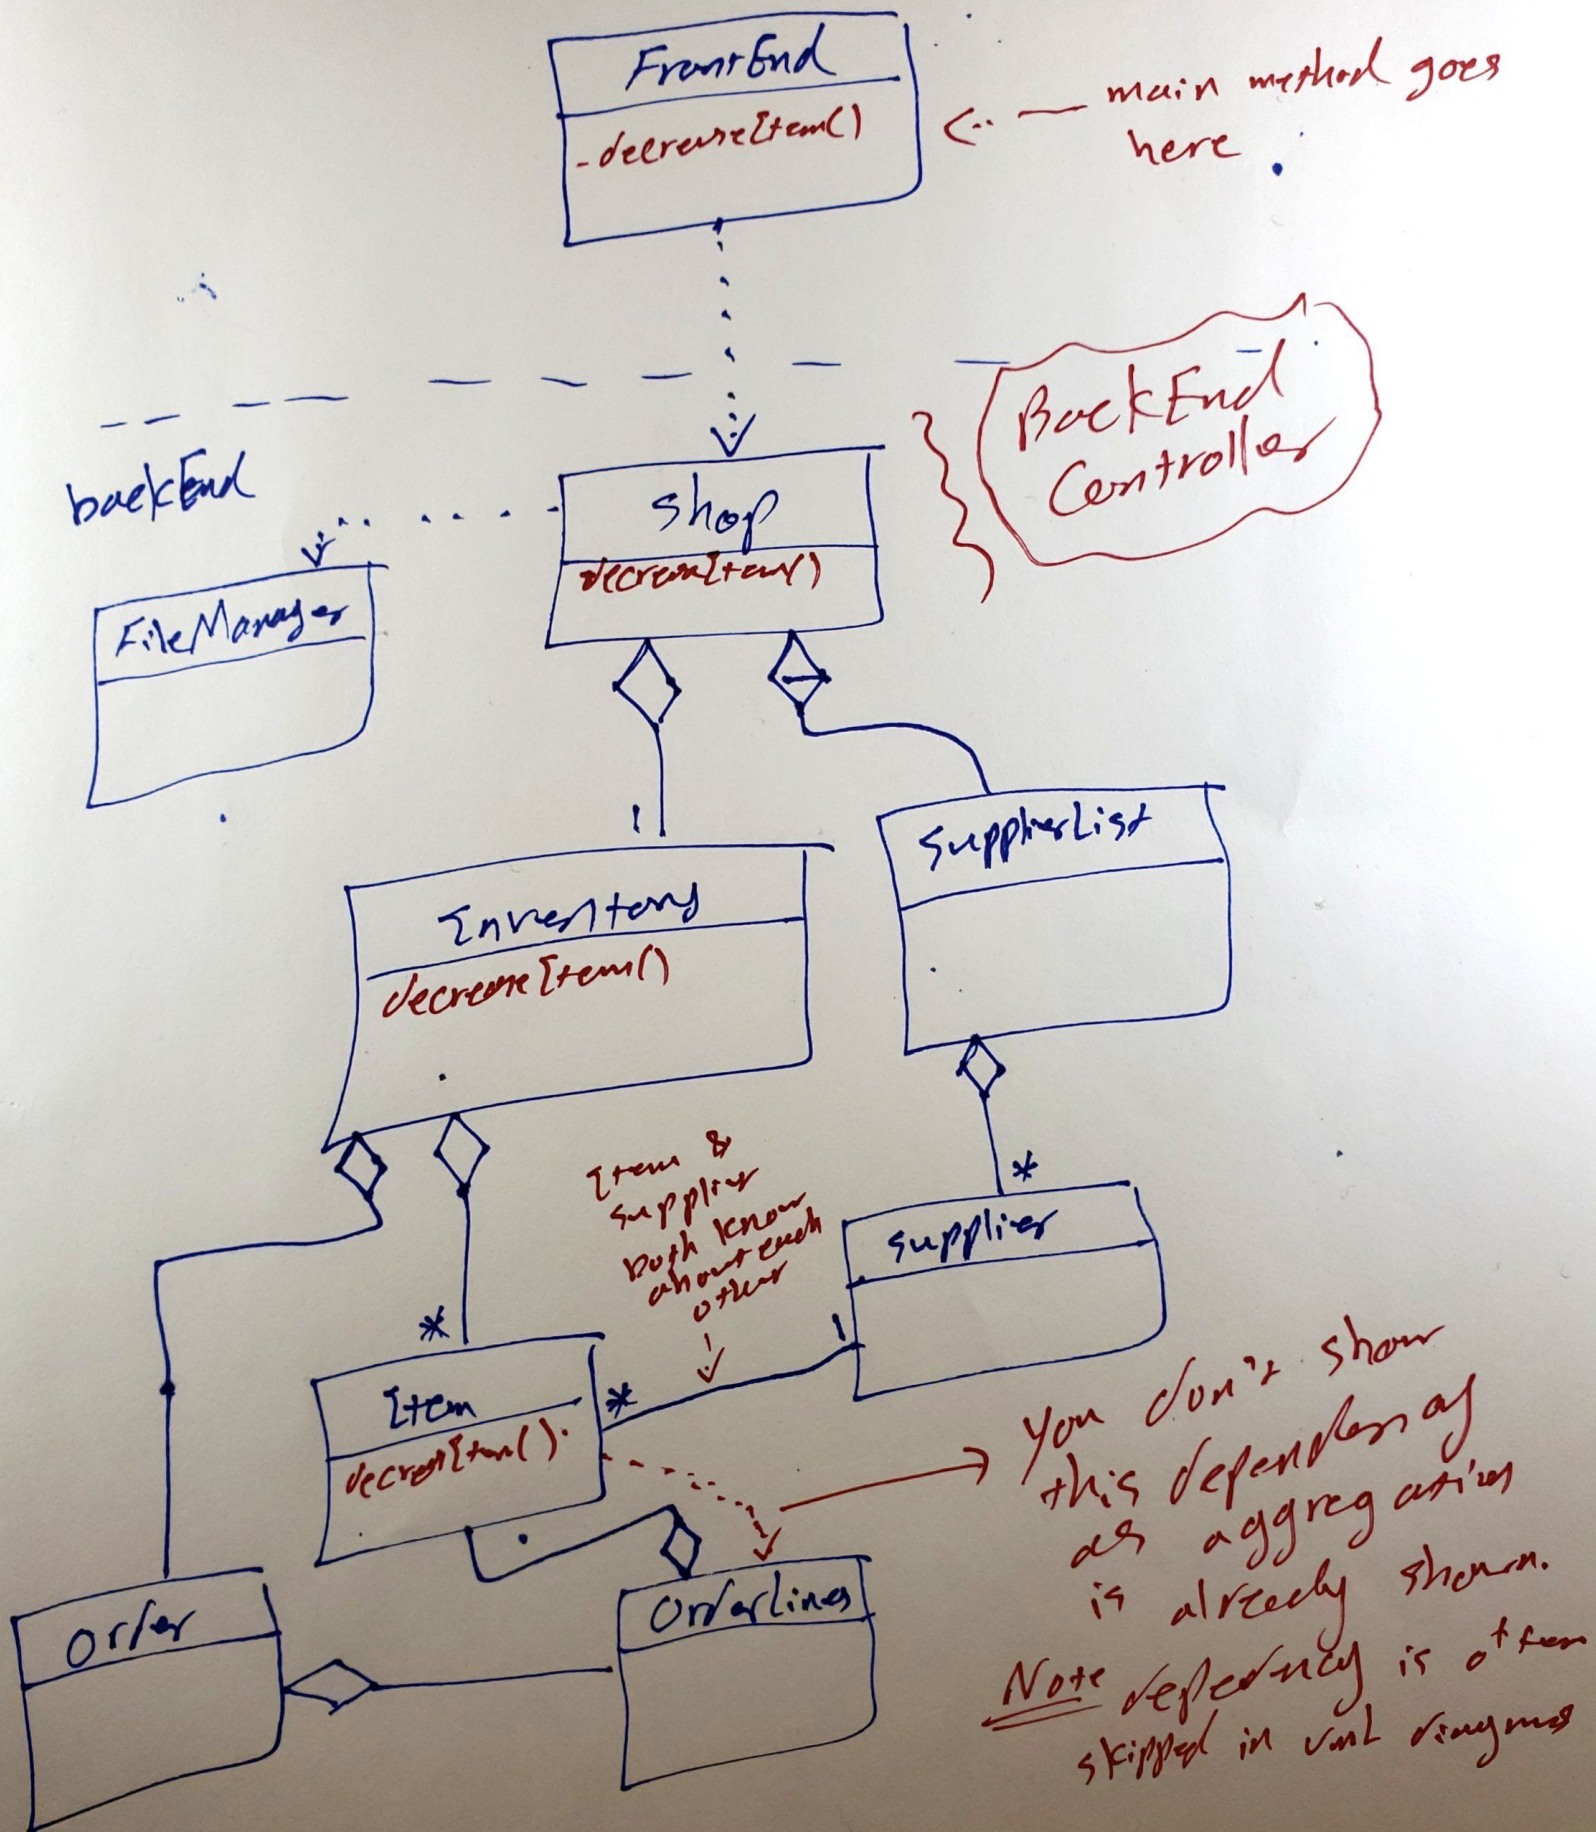 FrontEnd
-decreaseItem()
main method goes
here
BackEnd
Controller
backEnd
Shop
decreaseItem()
FileManager
1
SupplierList
Inventory
decreaseItem()
*
Item &
supplier
both know
about each
other
supplier
*
1
Item
*
decreaseItem()
You don't show
this dependency
as aggregation
is already shown.
Order
OrderLines
Note dependency is often
skipped in UML diagrams